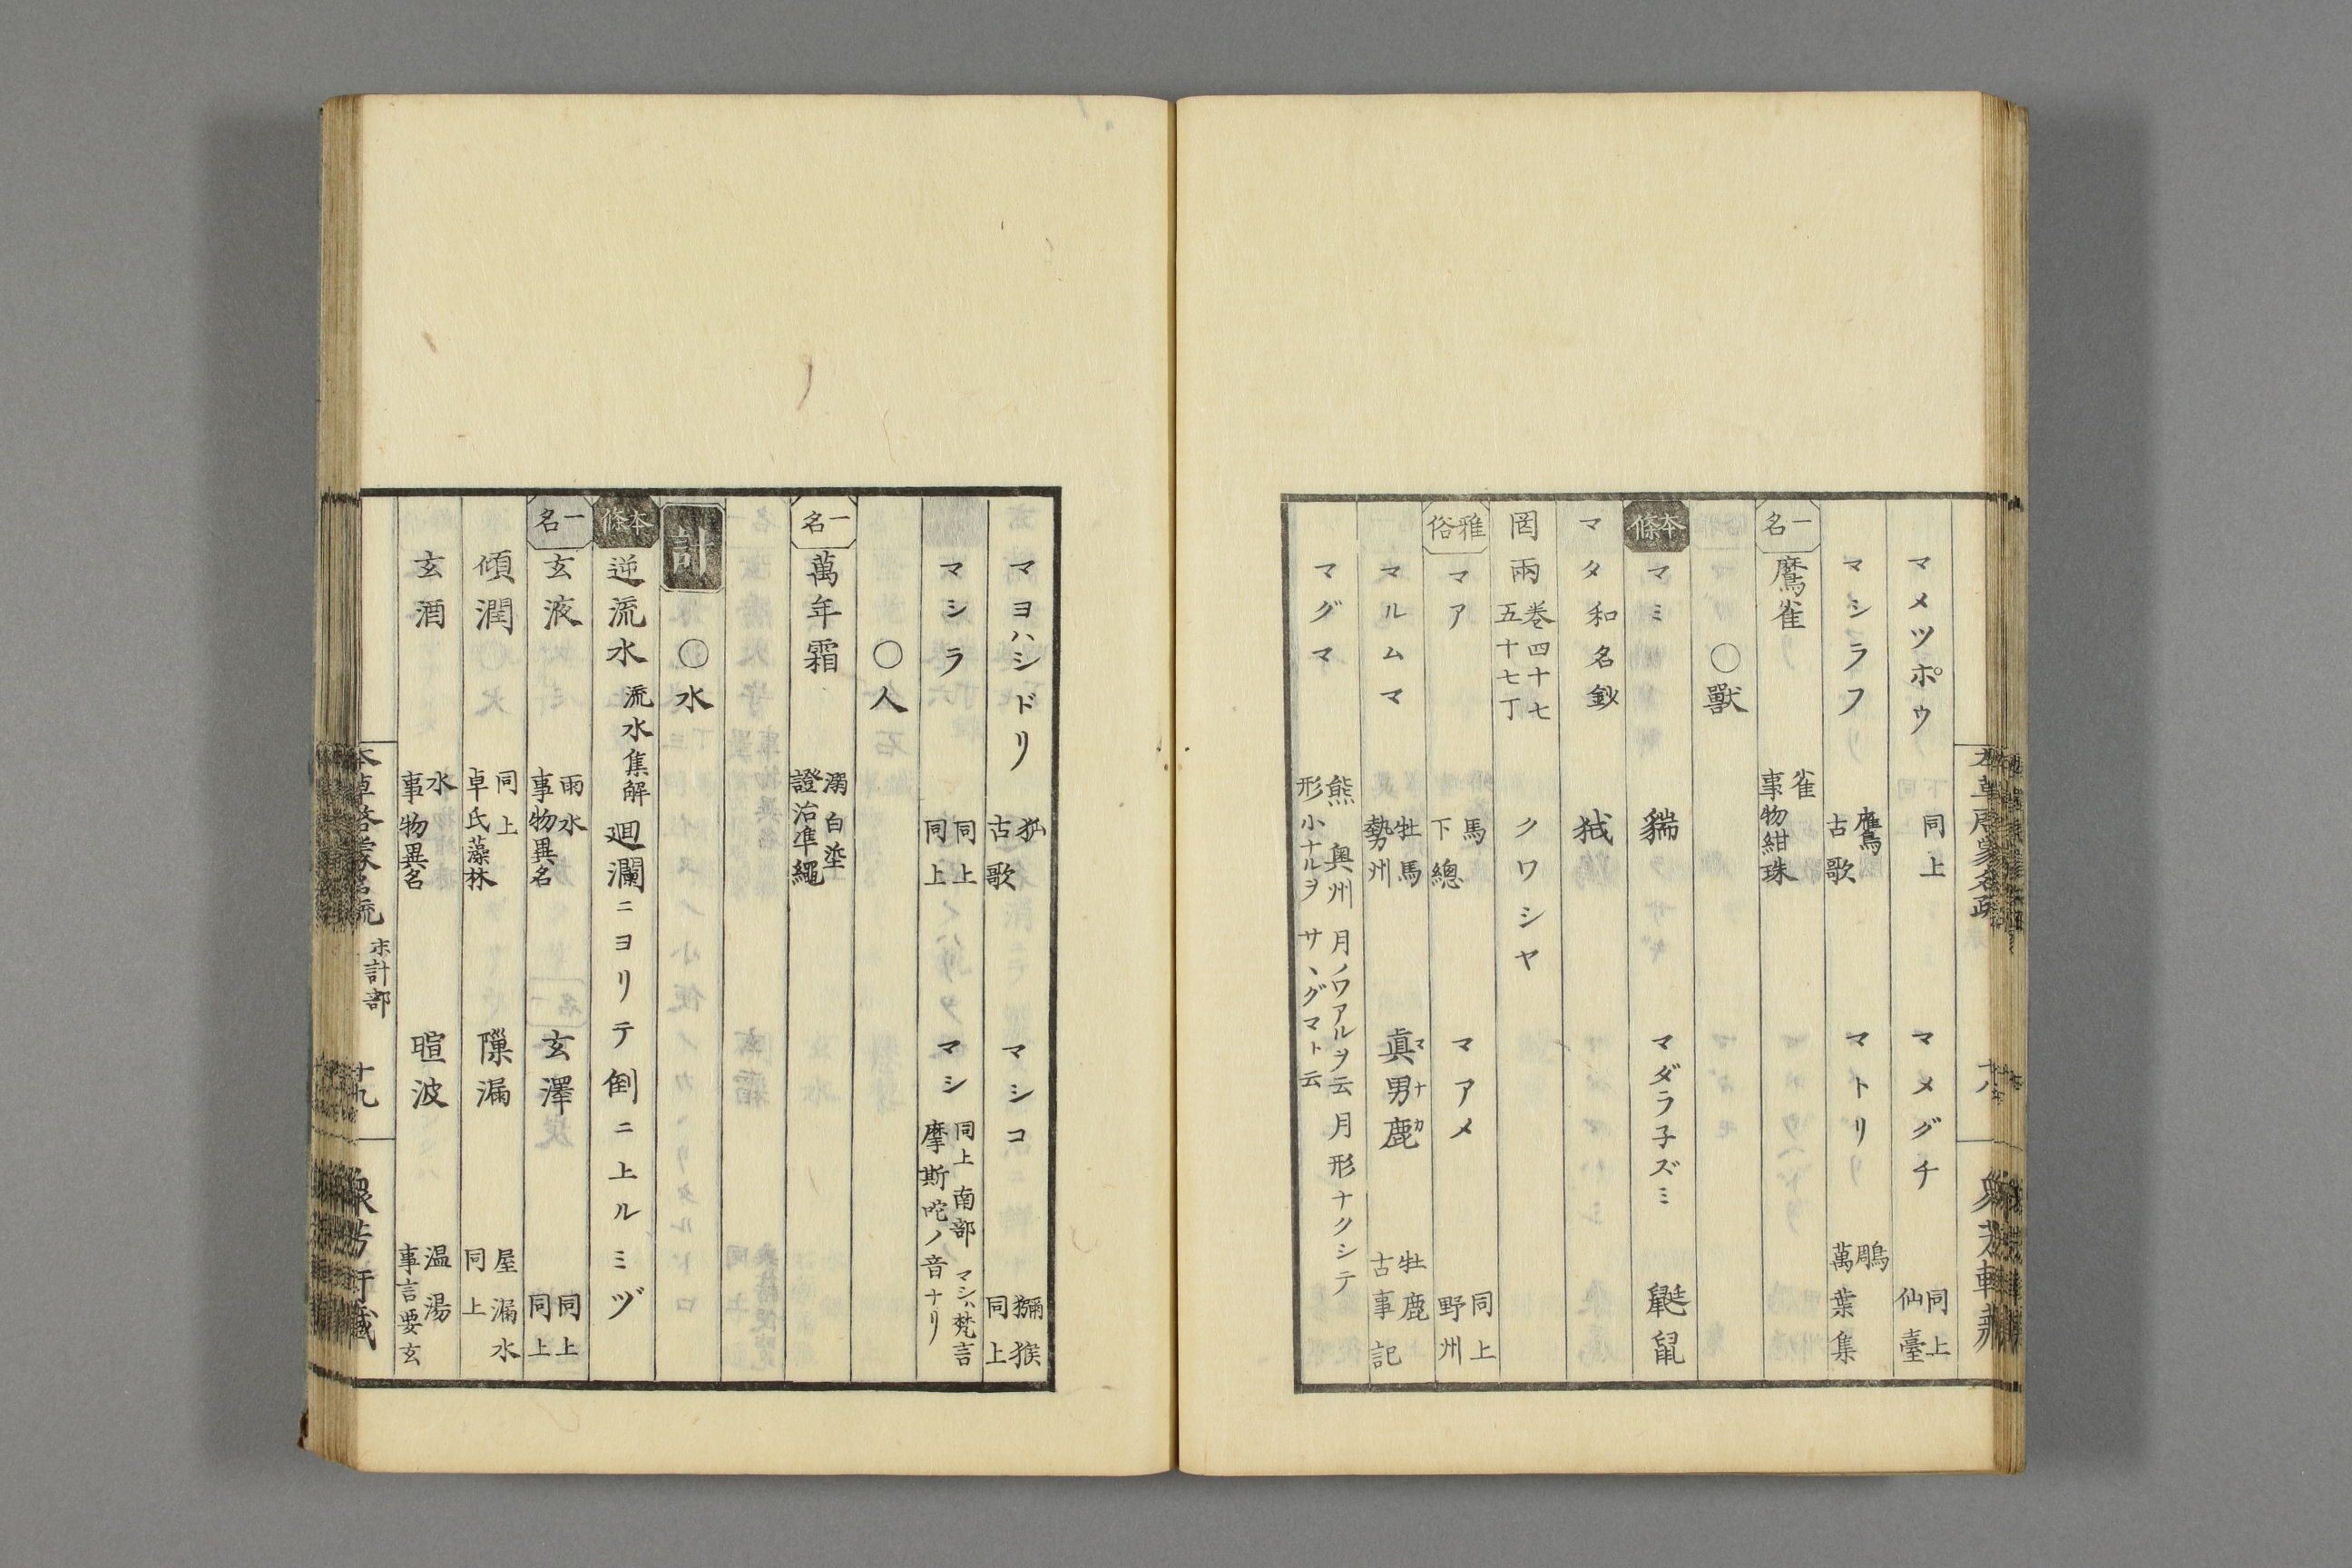 マメツポウ 同上 マメグチ 同上 仙臺
マシラフ 鷹 古歌 マトリ 鵰 萬葉集
一名 鷹雀 雀 事物紺珠
〇獸
本條 マミ 貒 マダラ子ズミ 鼮鼠
マタ和名鈔 狨
罔兩 巻四十七 五十七丁 クワシヤ
雅俗 マア 馬 下總 マアメ 同上 野州
マルムマ 牡馬 勢州 眞男鹿 マナカ 牡鹿 古事記
マグマ 熊 奥州 月ノワアルヲ云 月形ナクシテ 形小ナルヲ サヽグマト云
マヨハシドリ 狐 古歌 マシコ 獼猴 同上
マシラ 同上 同上 マシ 同上 南部 マシハ梵言 摩斯咤ノ音ナリ
〇人
一名 萬年霜 溺白垽 證治凖繩
計
〇水
本條 逆流水 流水集解 廻瀾ニヨリテ倒ニ上ルミヅ
一名 玄液 雨水 事物異名 玄澤 同上 同上
傾潤 同上 卓氏藻林 隟漏 屋漏水 同上
玄酒 水 事物異名 暄波 温湯 事言要玄
本草啓蒙名疏 末計部 十九